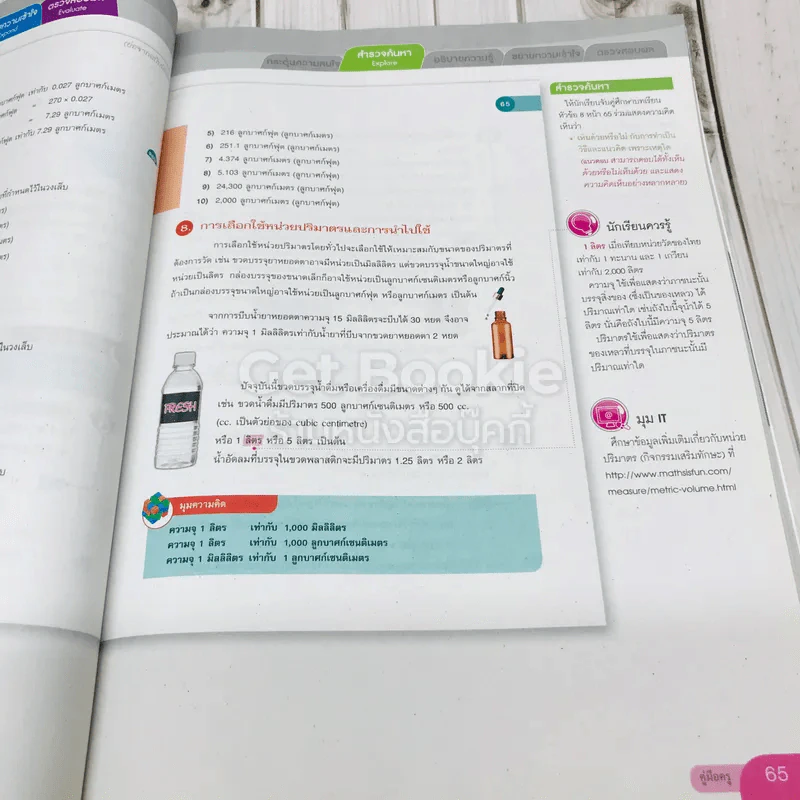 ตรวจสอบผล
Evaluate
Expand
กระตุ้นความสนใจ
สำรวจค้นหา
Explore
อธิบายความรู้
ขยายความเข้าใจ
ตรวจสอบผล
เท่ากับ 0.027 ลูกบาศก์เมตร
" 270 × 0.027
" 7.29 ลูกบาศก์เมตร
เท่ากับ 7.29 ลูกบาศก์เมตร
ที่กำหนดไว้ในวงเล็บ
ในวงเล็บ
65
5) 216 ลูกบาศก์ฟุต (ลูกบาศก์เมตร)
6) 251.1 ลูกบาศก์ฟุต (ลูกบาศก์เมตร)
7) 4.374 ลูกบาศก์เมตร (ลูกบาศก์ฟุต)
8) 5.103 ลูกบาศก์เมตร (ลูกบาศก์ฟุต)
9) 24,300 ลูกบาศก์เมตร (ลูกบาศก์ฟุต)
10) 2,000 ลูกบาศก์เมตร (ลูกบาศก์ฟุต)
8. การเลือกใช้หน่วยปริมาตรและการนำไปใช้
การเลือกใช้หน่วยปริมาตรโดยทั่วไปจะเลือกใช้ให้เหมาะสมกับขนาดของปริมาตรที่
ต้องการวัด เช่น ขวดบรรจุยาหยอดตาอาจมีหน่วยเป็นมิลลิลิตร แต่ขวดบรรจุน้ำขนาดใหญ่อาจใช้
หน่วยเป็นลิตร กล่องบรรจุของขนาดเล็กก็อาจใช้หน่วยเป็นลูกบาศก์เซนติเมตรหรือลูกบาศก์นิ้ว
ถ้าเป็นกล่องบรรจุขนาดใหญ่อาจใช้หน่วยเป็นลูกบาศก์ฟุต หรือลูกบาศก์เมตร เป็นต้น
จากการบีบน้ำยาหยอดตาความจุ 15 มิลลิลิตรจะบีบได้ 30 หยด จึงอาจ
ประมาณได้ว่า ความจุ 1 มิลลิลิตรเท่ากับน้ำยาที่บีบจากขวดยาหยอดตา 2 หยด
Get Bookie
ร้านหนังสือบุ๊คกี้
FRESH
ปัจจุบันนี้ขวดบรรจุน้ำดื่มหรือเครื่องดื่มมีขนาดต่างๆ กัน ดูได้จากสลากที่ปิด
เช่น ขวดน้ำดื่มมีปริมาตร 500 ลูกบาศก์เซนติเมตร หรือ 500 cc.
(cc. เป็นตัวย่อของ cubic centimetre)
หรือ 1 ลิตร หรือ 5 ลิตร เป็นต้น
น้ำอัดลมที่บรรจุในขวดพลาสติกจะมีปริมาตร 1.25 ลิตร หรือ 2 ลิตร
มุมความคิด
ความจุ 1 ลิตร เท่ากับ 1,000 มิลลิลิตร
ความจุ 1 ลิตร เท่ากับ 1,000 ลูกบาศก์เซนติเมตร
ความจุ 1 มิลลิลิตร เท่ากับ 1 ลูกบาศก์เซนติเมตร
สำรวจค้นหา
ให้นักเรียนจับคู่ศึกษาบทเรียน
หัวข้อ 8 หน้า 65 ร่วมแสดงความคิด
เห็นว่า
• เห็นด้วยหรือไม่ กับการทำเป็น
วิธีและแนวคิด เพราะเหตุใด
(แนวตอบ สามารถตอบได้ทั้งเห็น
ด้วยหรือไม่เห็นด้วย และแสดง
ความคิดเห็นอย่างหลากหลาย)
นักเรียนควรรู้
1 ลิตร เมื่อเทียบหน่วยวัดของไทย
เท่ากับ 1 ทะนาน และ 1 เกวียน
เท่ากับ 2,000 ลิตร
ความจุ ใช้เพื่อแสดงว่าภาชนะนั้น
บรรจุสิ่งของ (ซึ่งเป็นของเหลว) ได้
ปริมาณเท่าใด เช่นถังใบนี้จุน้ำได้ 5
ลิตร นั่นคือถังใบนี้มีความจุ 5 ลิตร
ปริมาตรใช้เพื่อแสดงว่าปริมาตร
ของเหลวที่บรรจุในภาชนะนั้นมี
ปริมาณเท่าใด
มุม IT
ศึกษาข้อมูลเพิ่มเติมเกี่ยวกับหน่วย
ปริมาตร (กิจกรรมเสริมทักษะ) ที่
http://www.mathsisfun.com/
measure/metric-volume.html
คู่มือครู 65